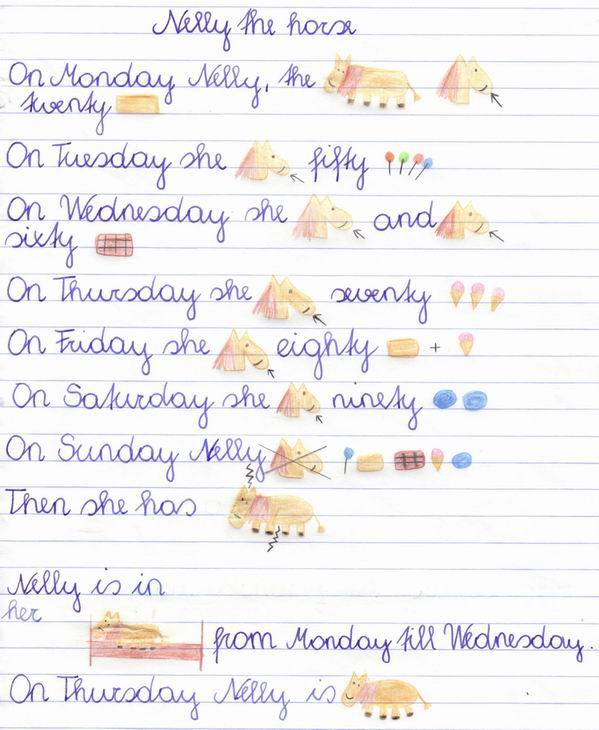 Nelly the horse
On Monday Nelly, the
twenty
On Tuesday she fifty
On Wednesday she and
sixty
On Thursday she seventy
On Friday she eighty +
On Saturday she ninety
On Sunday Nelly
Then she has
Nelly is in
her
from Monday till Wednesday.
On Thursday Nelly is